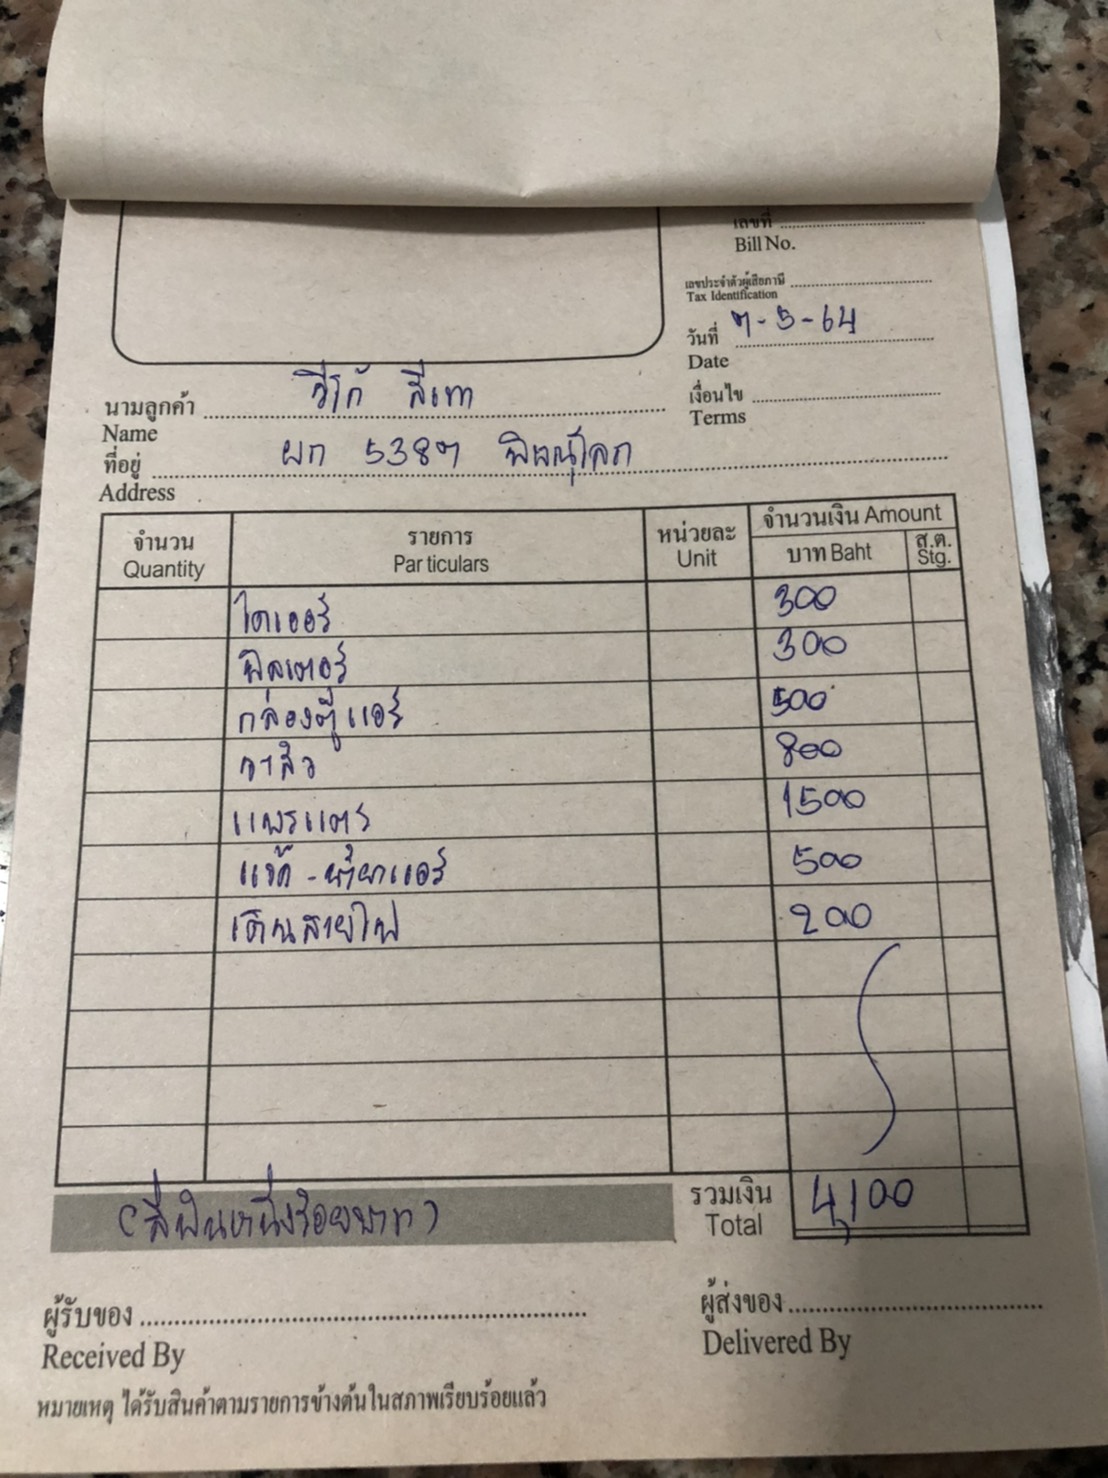 เลขที่
Bill No.
เลขประจำตัวผู้เสียภาษี
Tax Identification
วันที่ 7-5-64
Date
เงื่อนไข
Terms
นามลูกค้า วีโก้ สีเทา
Name
ที่อยู่ ผก 5387 พิษณุโลก
Address
จำนวน รายการ หน่วยละ จำนวนเงิน Amount
Quantity Particulars Unit บาท Baht ส.ต. Stg.
ไดเออร์ 300
ฟิลเตอร์ 300
กล่องตู้แอร์ 500
วาล์ว 800
แพรแตร 1500
แว๊ค - น้ำยาแอร์ 500
เดินสายไฟ 200
(สี่พันหนึ่งร้อยบาท) รวมเงิน 4,100
Total
ผู้รับของ ผู้ส่งของ
Received By Delivered By
หมายเหตุ ได้รับสินค้าตามรายการข้างต้นในสภาพเรียบร้อยแล้ว